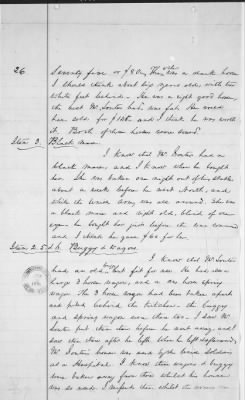 26 Seventy five or $80. The other was a dark horse
I should think about six years old, with two
white feet behind. He was a right good horse,
the best Mr. had, was fat. He would
have sold for $150. and I think he was worth
it. Both of them horses were sound.
Item 3. Black Mare.
I knew that Mr. had a
black mare, and I knew when he bought
her. She was taken one night out of his stable
about a week before he went North, and
while the Union Army was all around. She was
a black mare and eight old, blind of one
eye. He bought her just before the war
and I think he gave $60 for her.
Item 2. 5 & 6. Buggy & Wagons
I know that Mr.
had an old buggy but fit for use. He had also a
large 2 horse wagon, and a one horse spring
wagon. The 2 horse wagon had been taken apart
and piled behind the kitchen. the buggy
and spring wagon were there too. I saw Mr.
put them there before he went away, and I
saw them there after he left. When he left
Mr. house was used by the Union Soldiers
as a Hospital. I knew those wagons & buggy
were taken away from there whilst his house
was so used. I